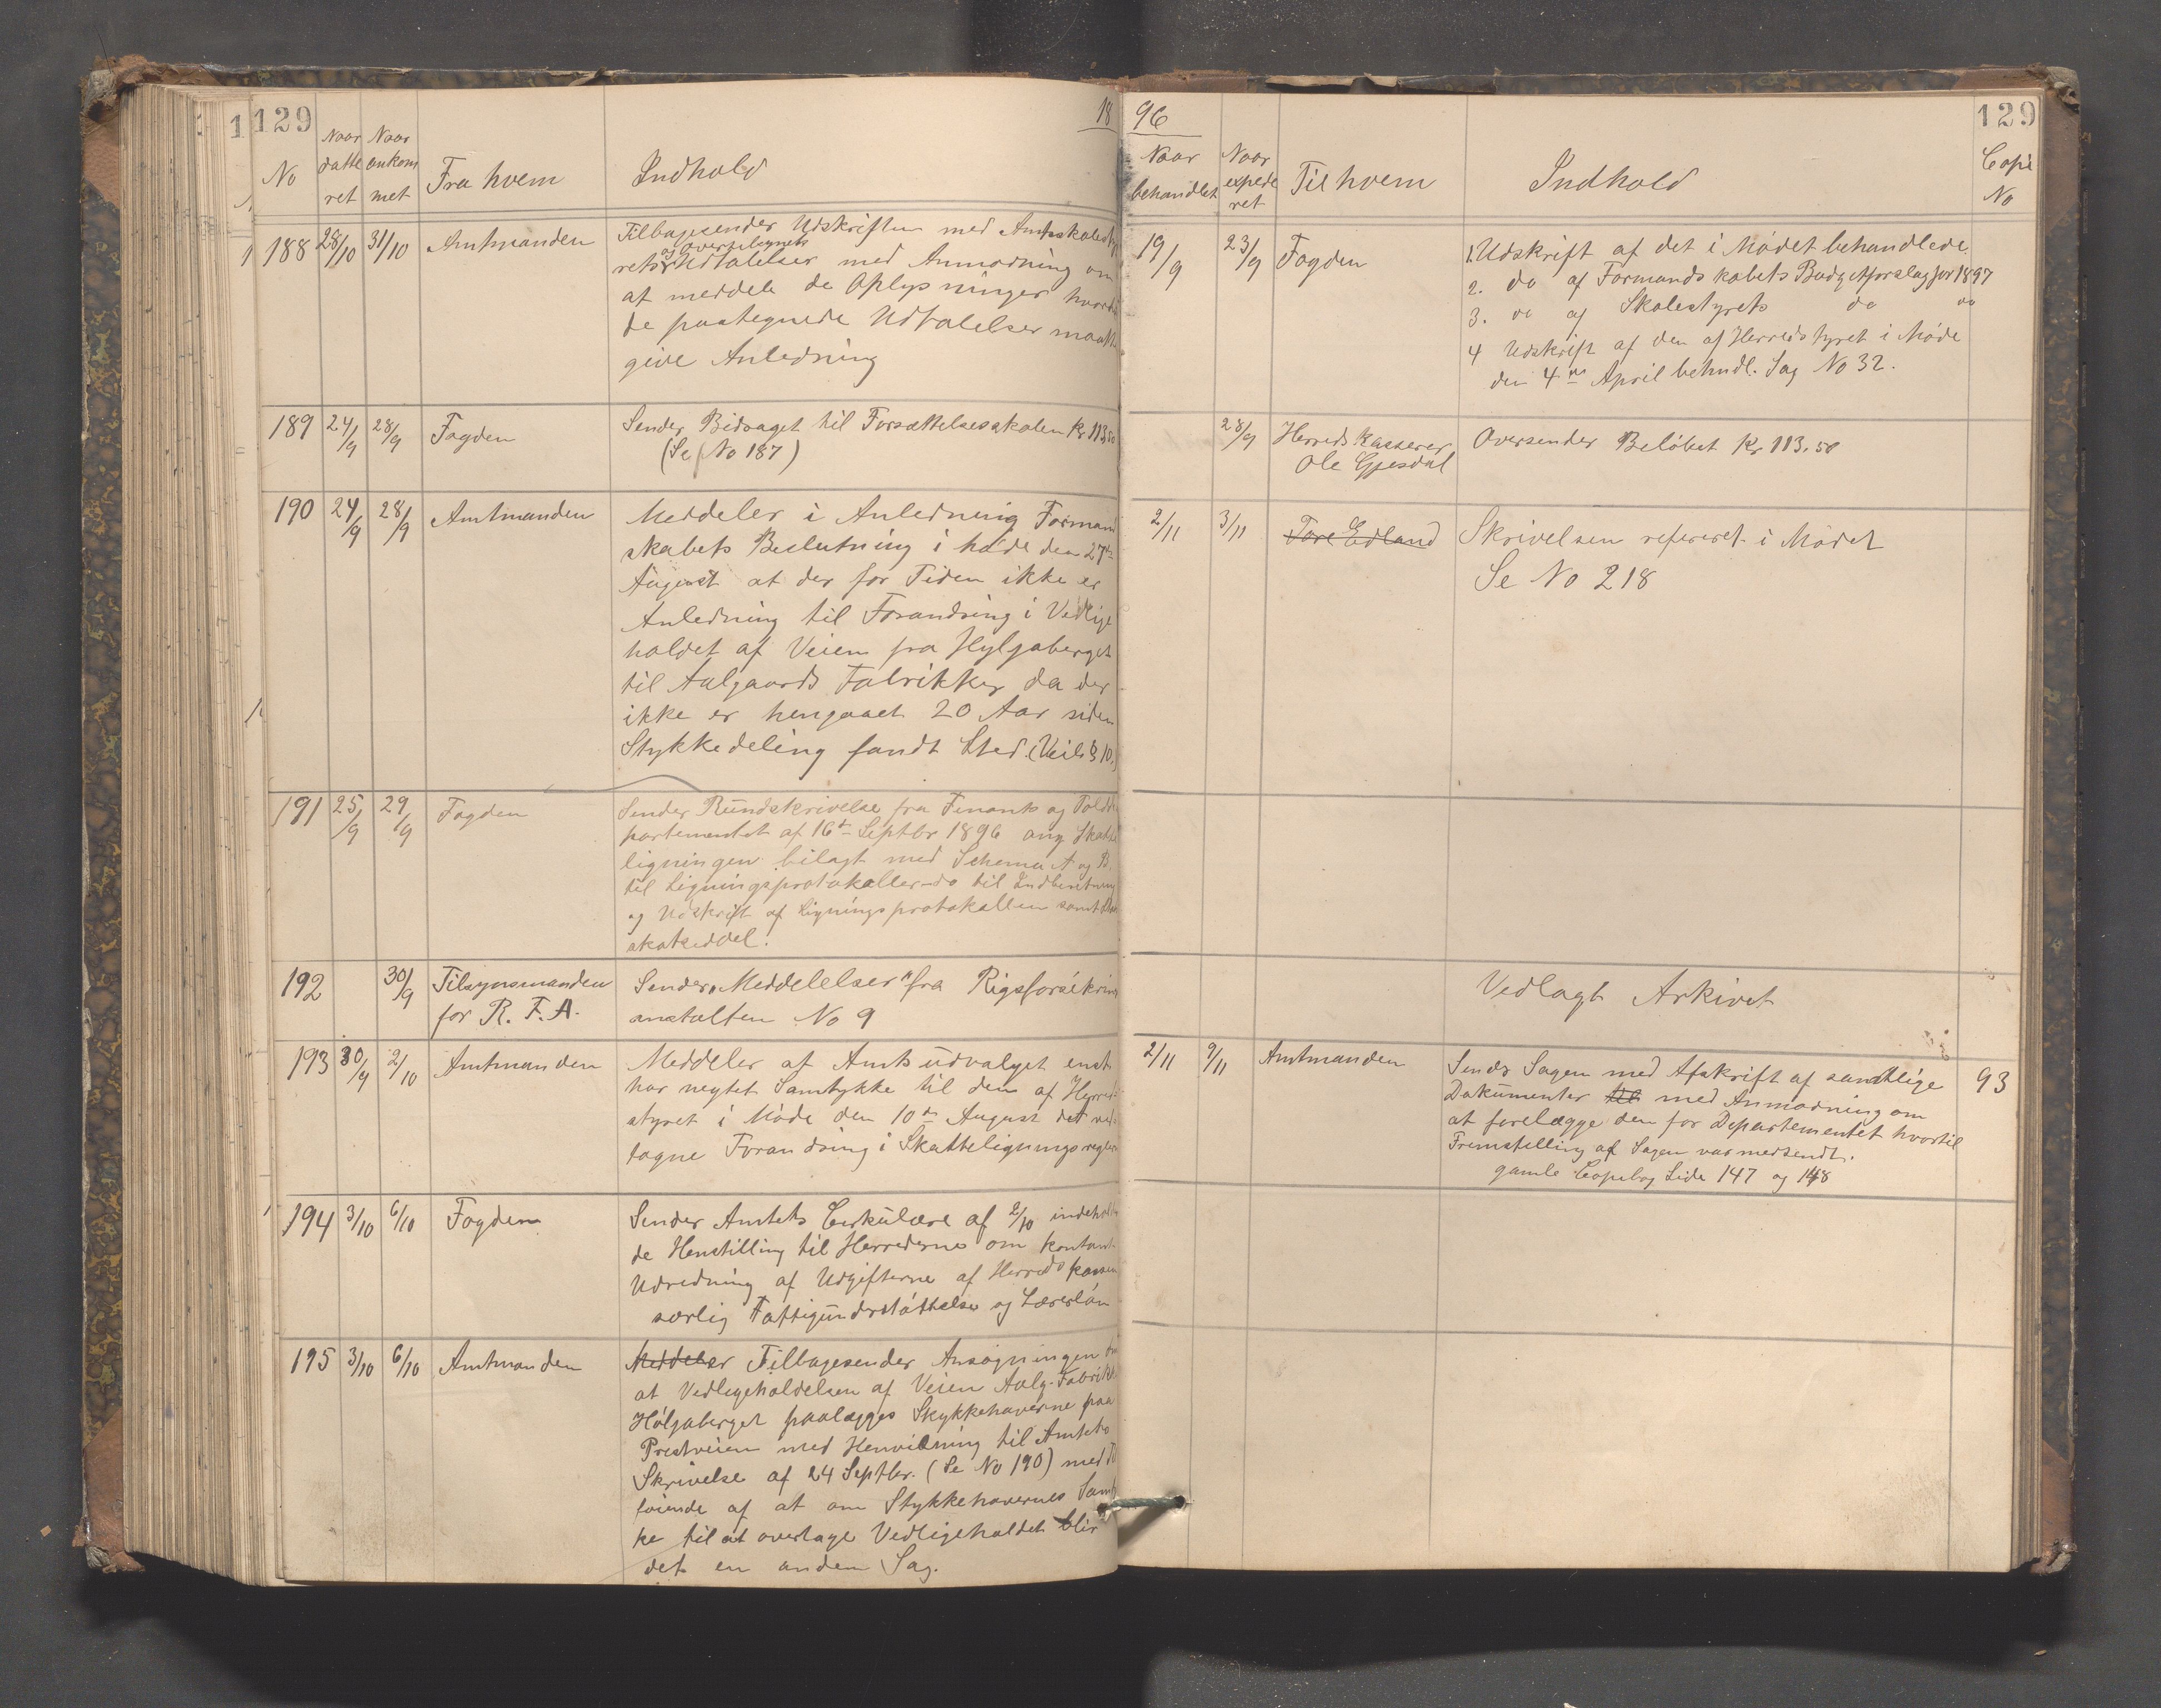 129
18
No
Naar datteret
Naar ankommet
Fra hvem
Indhold
188 28/10 31/10 Amtmanden
Tilbagesender Udskriften med Amtsskolesty
og Overtilsynets
rets Udtalelser med Anmodning om
at meddele de Oplysninger hvortil
de paategnede Udtalelser maatte
give Anledning
189 24/9 28/9 Fogden
Sender Bidraget til Forsættelsesskolen Kr 113,50
(Se No 187)
190 24/9 28/9 Amtmanden
Meddeler i Anledning Formand
skabets Beslutning i Møde den 27de
August at der for Tiden ikke er
Anledning til Forandring i Vedlige
holdet af Veien fra Hylgaberget
til Aalgaards Fabrikker da der
ikke er hengaaet 20 Aar siden
Stykkedeling fandt Sted. (Veil. § 10.)
191 25/9 29/9 Fogden
Sender Rundskrivelse fra Finants og Toldde
partementet af 16de Septbr 1896 ang Skatte
ligningen bilagt med Schema A og B.
til Ligningsprotokoller – do til Indberetning
og Udskrift af Ligningsprotokollen samt
skatseddel.
192 30/9 Tilsynsmanden
for R. F. A.
Sender "Meddelelser" fra Rigsforsikrings
anstalten No 9
193 30/9 2/10 Amtmanden
Meddeler at Amtsudvalget enst
har negtet Samtykke til den af Herreds
styret i Møde den 10de August det ved
tagne Forandring i Skatteligningsregler
194 3/10 6/10 Fogden
Sender Amtets Cirkulære af 2/10 indehold
de Henstilling til Herrederne om kontant
Udredning af Udgifterne af Herredskassen
særlig Fattigunderstøttelse og Lærerløn
195 3/10 6/10 Amtmanden
Meddeler Tilbagesender Ansøgningen om
at Vedligeholdelsen af Veien Aalg. Fabrik
Hølgaberget paalægges Skykkehaverne paa
Prestveien med Henvisning til Amtets
Skrivelse af 24 Septbr. (Se No 190) med Til
føiende af at om Stykkehavernes Samtyk
ke til at overtage Vedligeholdet blir
det en anden Sag.
96
129
Naar behandlet
Naar expederet
Til hvem
Indhold
Copi No
19/9 23/9 Fogden
1. Udskrift af det i Mødet behandlede
2. do af Formandskabets Budgetforslag for 1897
3. do af Skolestyrets do do
4 Udskrift af den af Herredstyret i Møde
den 4de April behndl. Sag No 32.
28/9 Herredskasserer
Ole Gjesdal
Oversender Beløbet Kr 113.50
2/11 3/11 Tore Edland
Skrivelsen refereret i Mødet
Se No 218
Vedlagt Arkivet
2/11 9/11 Amtmanden
Sendr Sagen med Afskrift af samtlige
Dokumenter til med Anmodning om
at forelægge den for Departementet hvortil
Fremstelling af Sagen var medsendt.
gamle Copibog Side 147 og 148
93